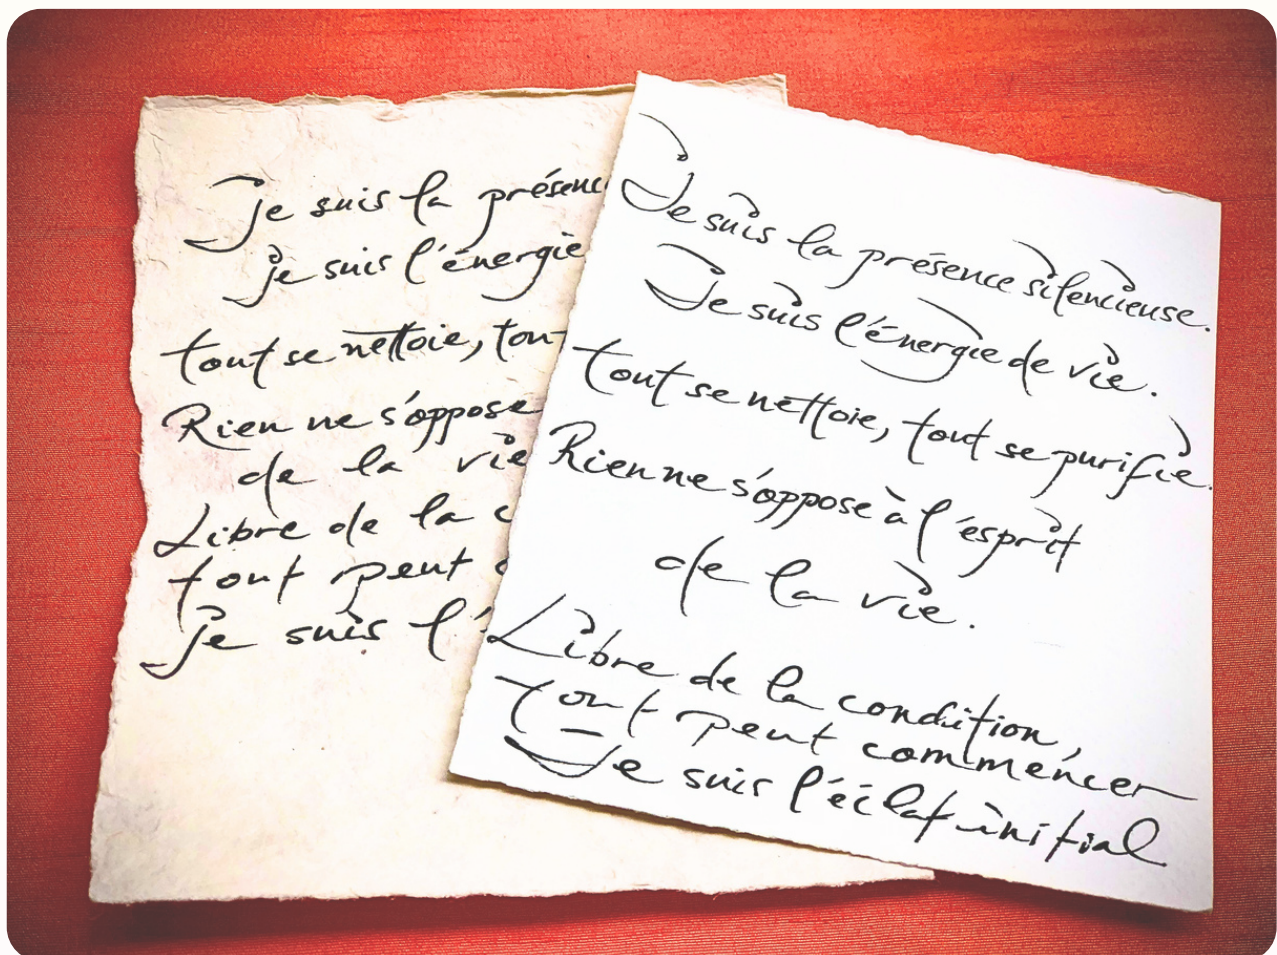 Je suis la présenc
je suis l'énergie
tout se nettoie, tout
Rien ne s'oppose
de la vie
Libre de la c
tout peut
je suis l'
Je suis la présence silencieuse.
Je suis l'énergie de vie.
tout se nettoie, tout se purifie.
Rien ne s'oppose à l'esprit
de la vie.
Libre de la condition,
tout peut commencer
Je suis l'éclat initial